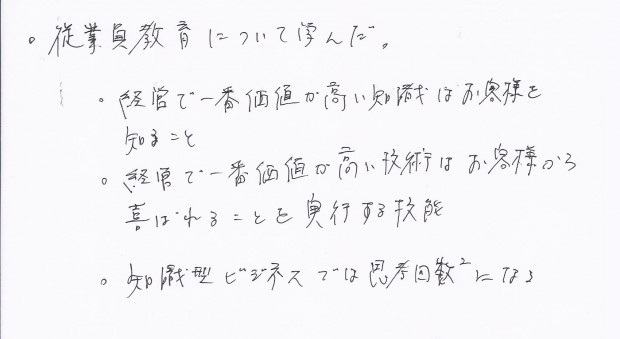 。従業員教育について学んだ。
。経営で一番価値が高い知識はお客様を
知ること
。経営で一番価値が高い技術はお客様から
喜ばれることを実行する技能
。知識型ビジネスでは思考回数²になる